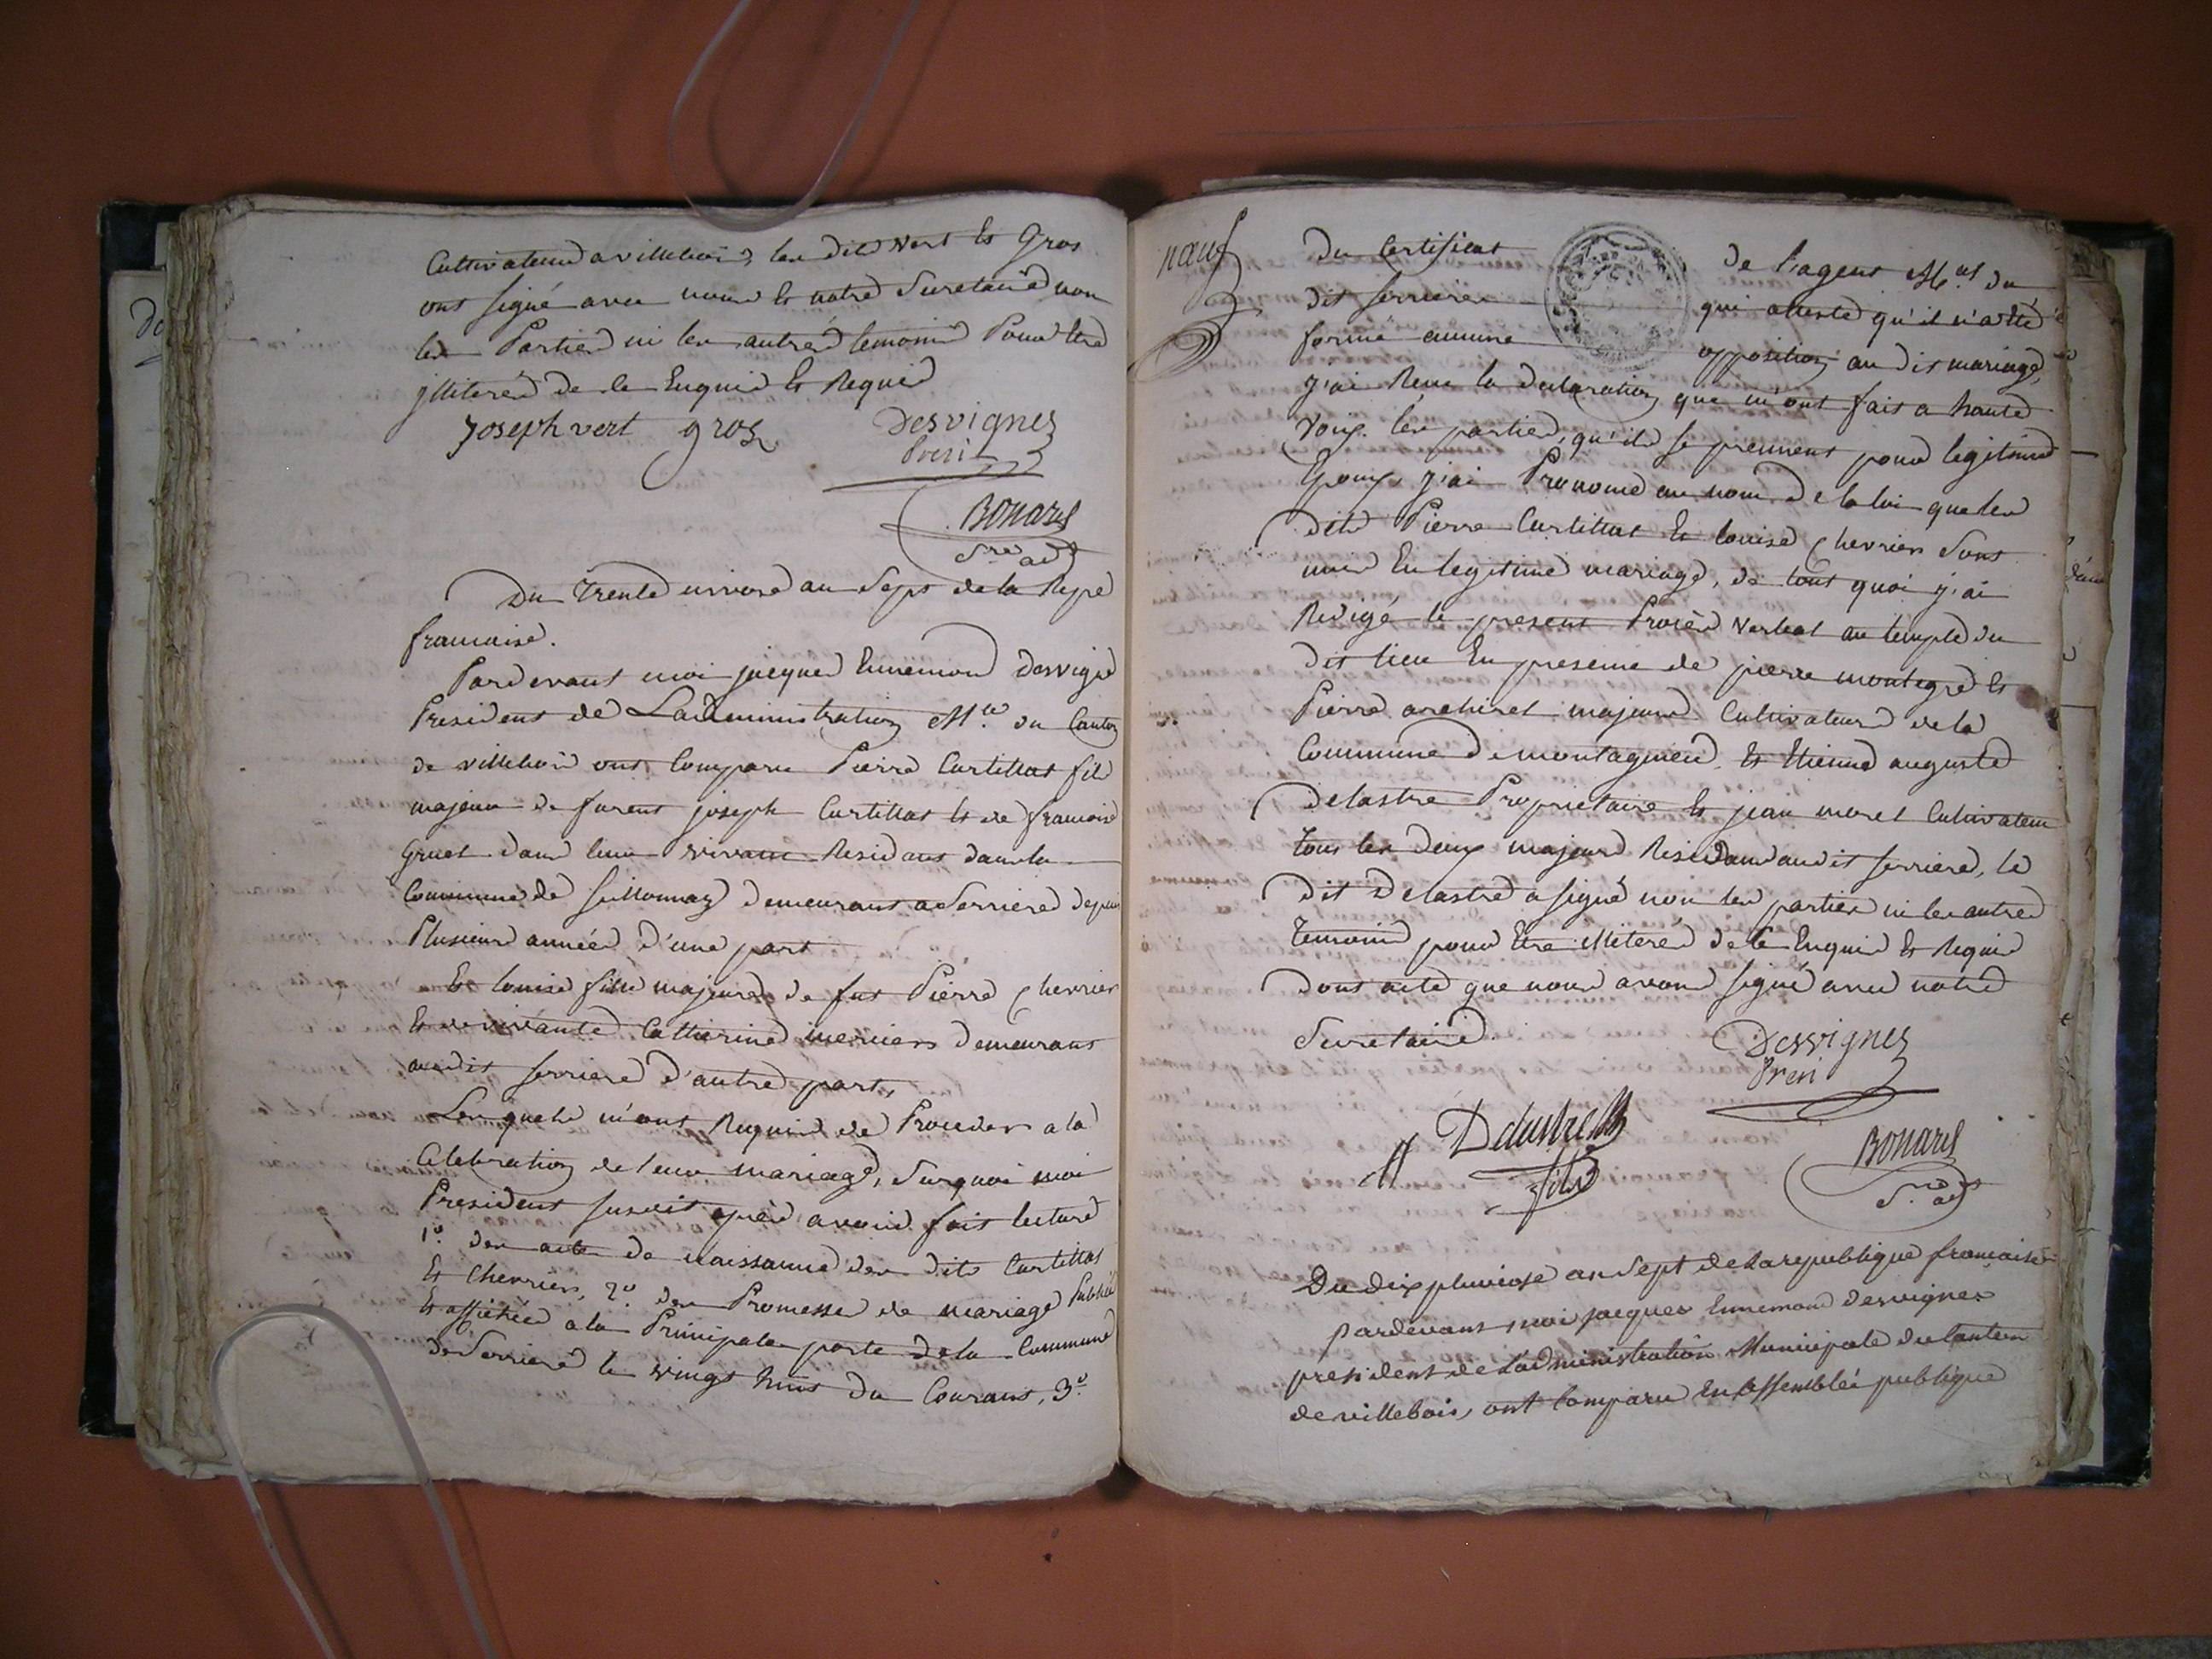 Cultivateurs a villebois, les dits Vert Et Gros
ont signé avec nous Et notre Secretaire non
les Parties ni les autres temoins Pour etre
illiterés de ce Enquis Et Requis
joseph vert gros Desvignes
Presi.
BONARD
S.re ad
Du Trente nivose an Sept de la Repe
francaise.
Pardevant moi jacques Ennemond Desvigne
President de Ladministration M.le du Canton
de villebois ont Comparu Pierre Curtillat fils
majeur de furent joseph Curtillat Et de francoise
Gruet dans leur vivant Residant dans la
Commune de Seillonnaz Demeurant a Serriere depuis
Plusieurs années d'une part
Et louise fille majeure de fut Pierre Cherrier
Et de vivante Catherine Demeurant
au dit Serriere d'autre part,
Les quels m'ont Requis de Proceder a la
Celebration de leur mariage, Sur quoi moi
President susdit après avoir fait lecture
1º des actes de naissance des dits Curtillat
Et Cherrier, 2º des Promesses de mariage Publiées
Et affichées a la Principale porte de la Commune
de Serriere le vingt huit du Courant, 3º
neuf
Du Certificat de l'agent M.al du
dit Serriere qui atteste qu'il n'a été
formé aucune opposition au dit mariage,
j'ai Recu la declaration que m'ont fait a haute
Voix les parties, qu'ils se prennent pour legitime
Epoux, j'ai Prononcé au nom de la loi que les
dits Pierre Curtillat Et louise Cherrier Sont
unis En legitime mariage, de tout quoi j'ai
Redigé le present Procès verbal au temple du
dit lieu En presence de pierre montegre Et
Pierre archiret majeurs Cultivateurs de la
Commune de montagnieu, Et Etienne auguste
Delastre Proprietaire Et jean moret Cultivateur
tous les deux majeurs Residant au dit Serriere, le
dit Delastre a signé non les parties ni les autres
temoins pour Etre illiterés de ce Enquis Et Requis
Dont acte que nous avons signé avec notre
Secretaire.
Desvignes
Presi
Delastre
fils
BONARD
S.re ad
Du dix pluviose an Sept de la republique francaise
pardevant moi jacques Ennemond desvignes
president de L'administration Municipale du Canton
de villebois, ont Comparu En assemblée publique